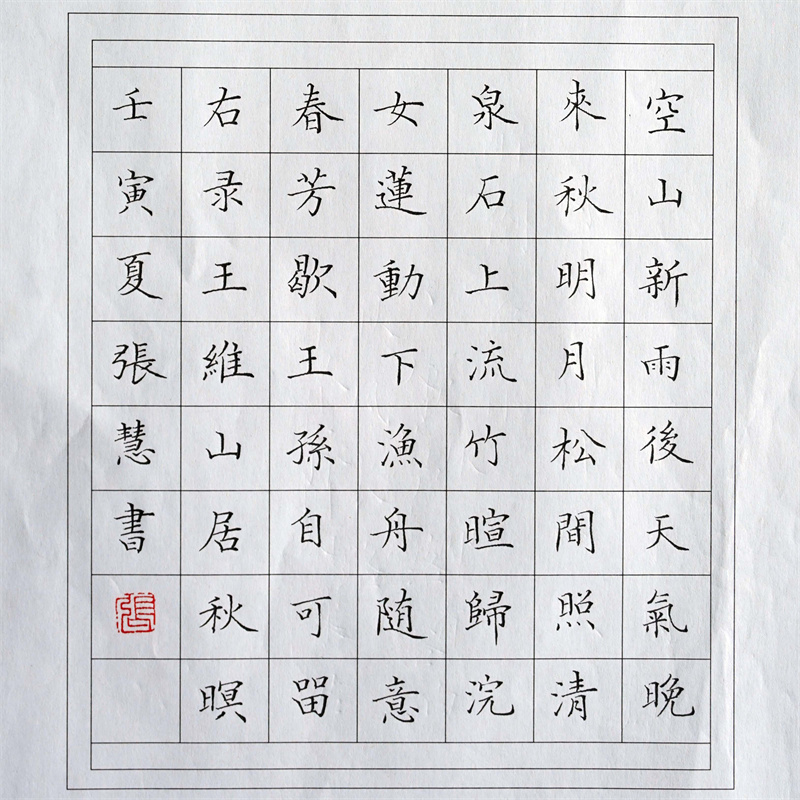 空山新雨後天氣晚
來秋明月松間照清
泉石上流竹暄歸浣
女蓮動下漁舟随意
春芳歇王孫自可留
右录王維山居秋暝
壬寅夏張慧書
張